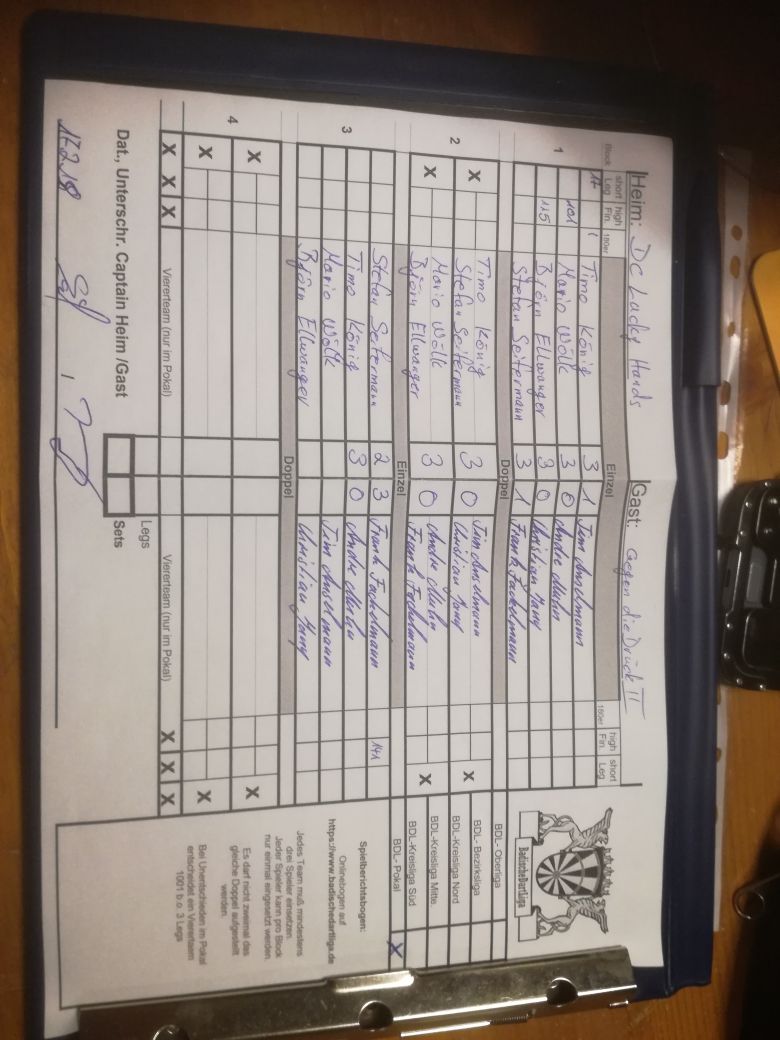 Heim: DC Lucky Hands Gast: Gegen die Drück II
Block short Leg high Fin. 180er Einzel 180er high Fin. short Leg
1 17 1 Timo König 3 1 Tim Anselmann
101 Mario Wölk 3 0 Andre Muhn
115 Björn Ellwanger 3 0 Christian Jany
Stefan Seifermann 3 1 Frank Fackelmann
Doppel
2 X Timo König 3 0 Tim Anselmann X
Stefan Seifermann Christian Jany
X Mario Wölk 3 0 Andre Muhn X
Björn Ellwanger Frank Fackelmann
Einzel
3 Stefan Seifermann 2 3 Frank Fackelmann 141
Timo König 3 0 Andre Muhn
Mario Wölk Tim Anselmann
Björn Ellwanger Christian Jany
Doppel
4 X X
X X
X X X Viererteam (nur im Pokal) Viererteam (nur im Pokal) X X X
Legs
Dat., Unterschr. Captain Heim /Gast Sets
17.2.19
BadischeDartLiga
BDL- Oberliga
BDL- Bezirksliga
BDL-Kreisliga Nord
BDL-Kreisliga Mitte
BDL-Kreisliga Süd
BDL- Pokal X
Spielberichtsbogen:
Onlinebogen auf
https://www.badischedartliga.de
Jedes Team muß mindestens
drei Spieler einsetzen
Jeder Spieler kann pro Block
nur einmal eingesetzt werden
Es darf nicht zweimal das
gleiche Doppel aufgestellt
werden.
Bei Unentschieden im Pokal
entscheidet ein Viererteam
1001 b.o. 3 Legs